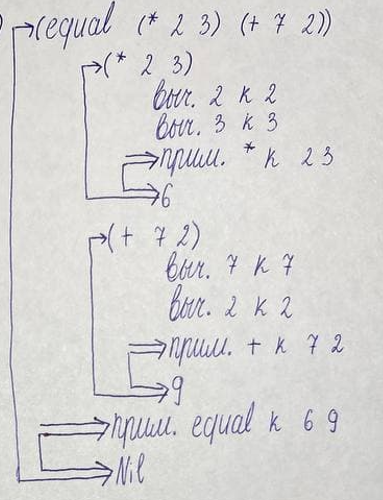 ) (equal (* 2 3) (+ 7 2))
(* 2 3)
выч. 2 к 2
выч. 3 к 3
прим. * к 2 3
6
(+ 7 2)
выч. 7 к 7
выч. 2 к 2
прим. + к 7 2
9
прим. equal к 6 9
Nil